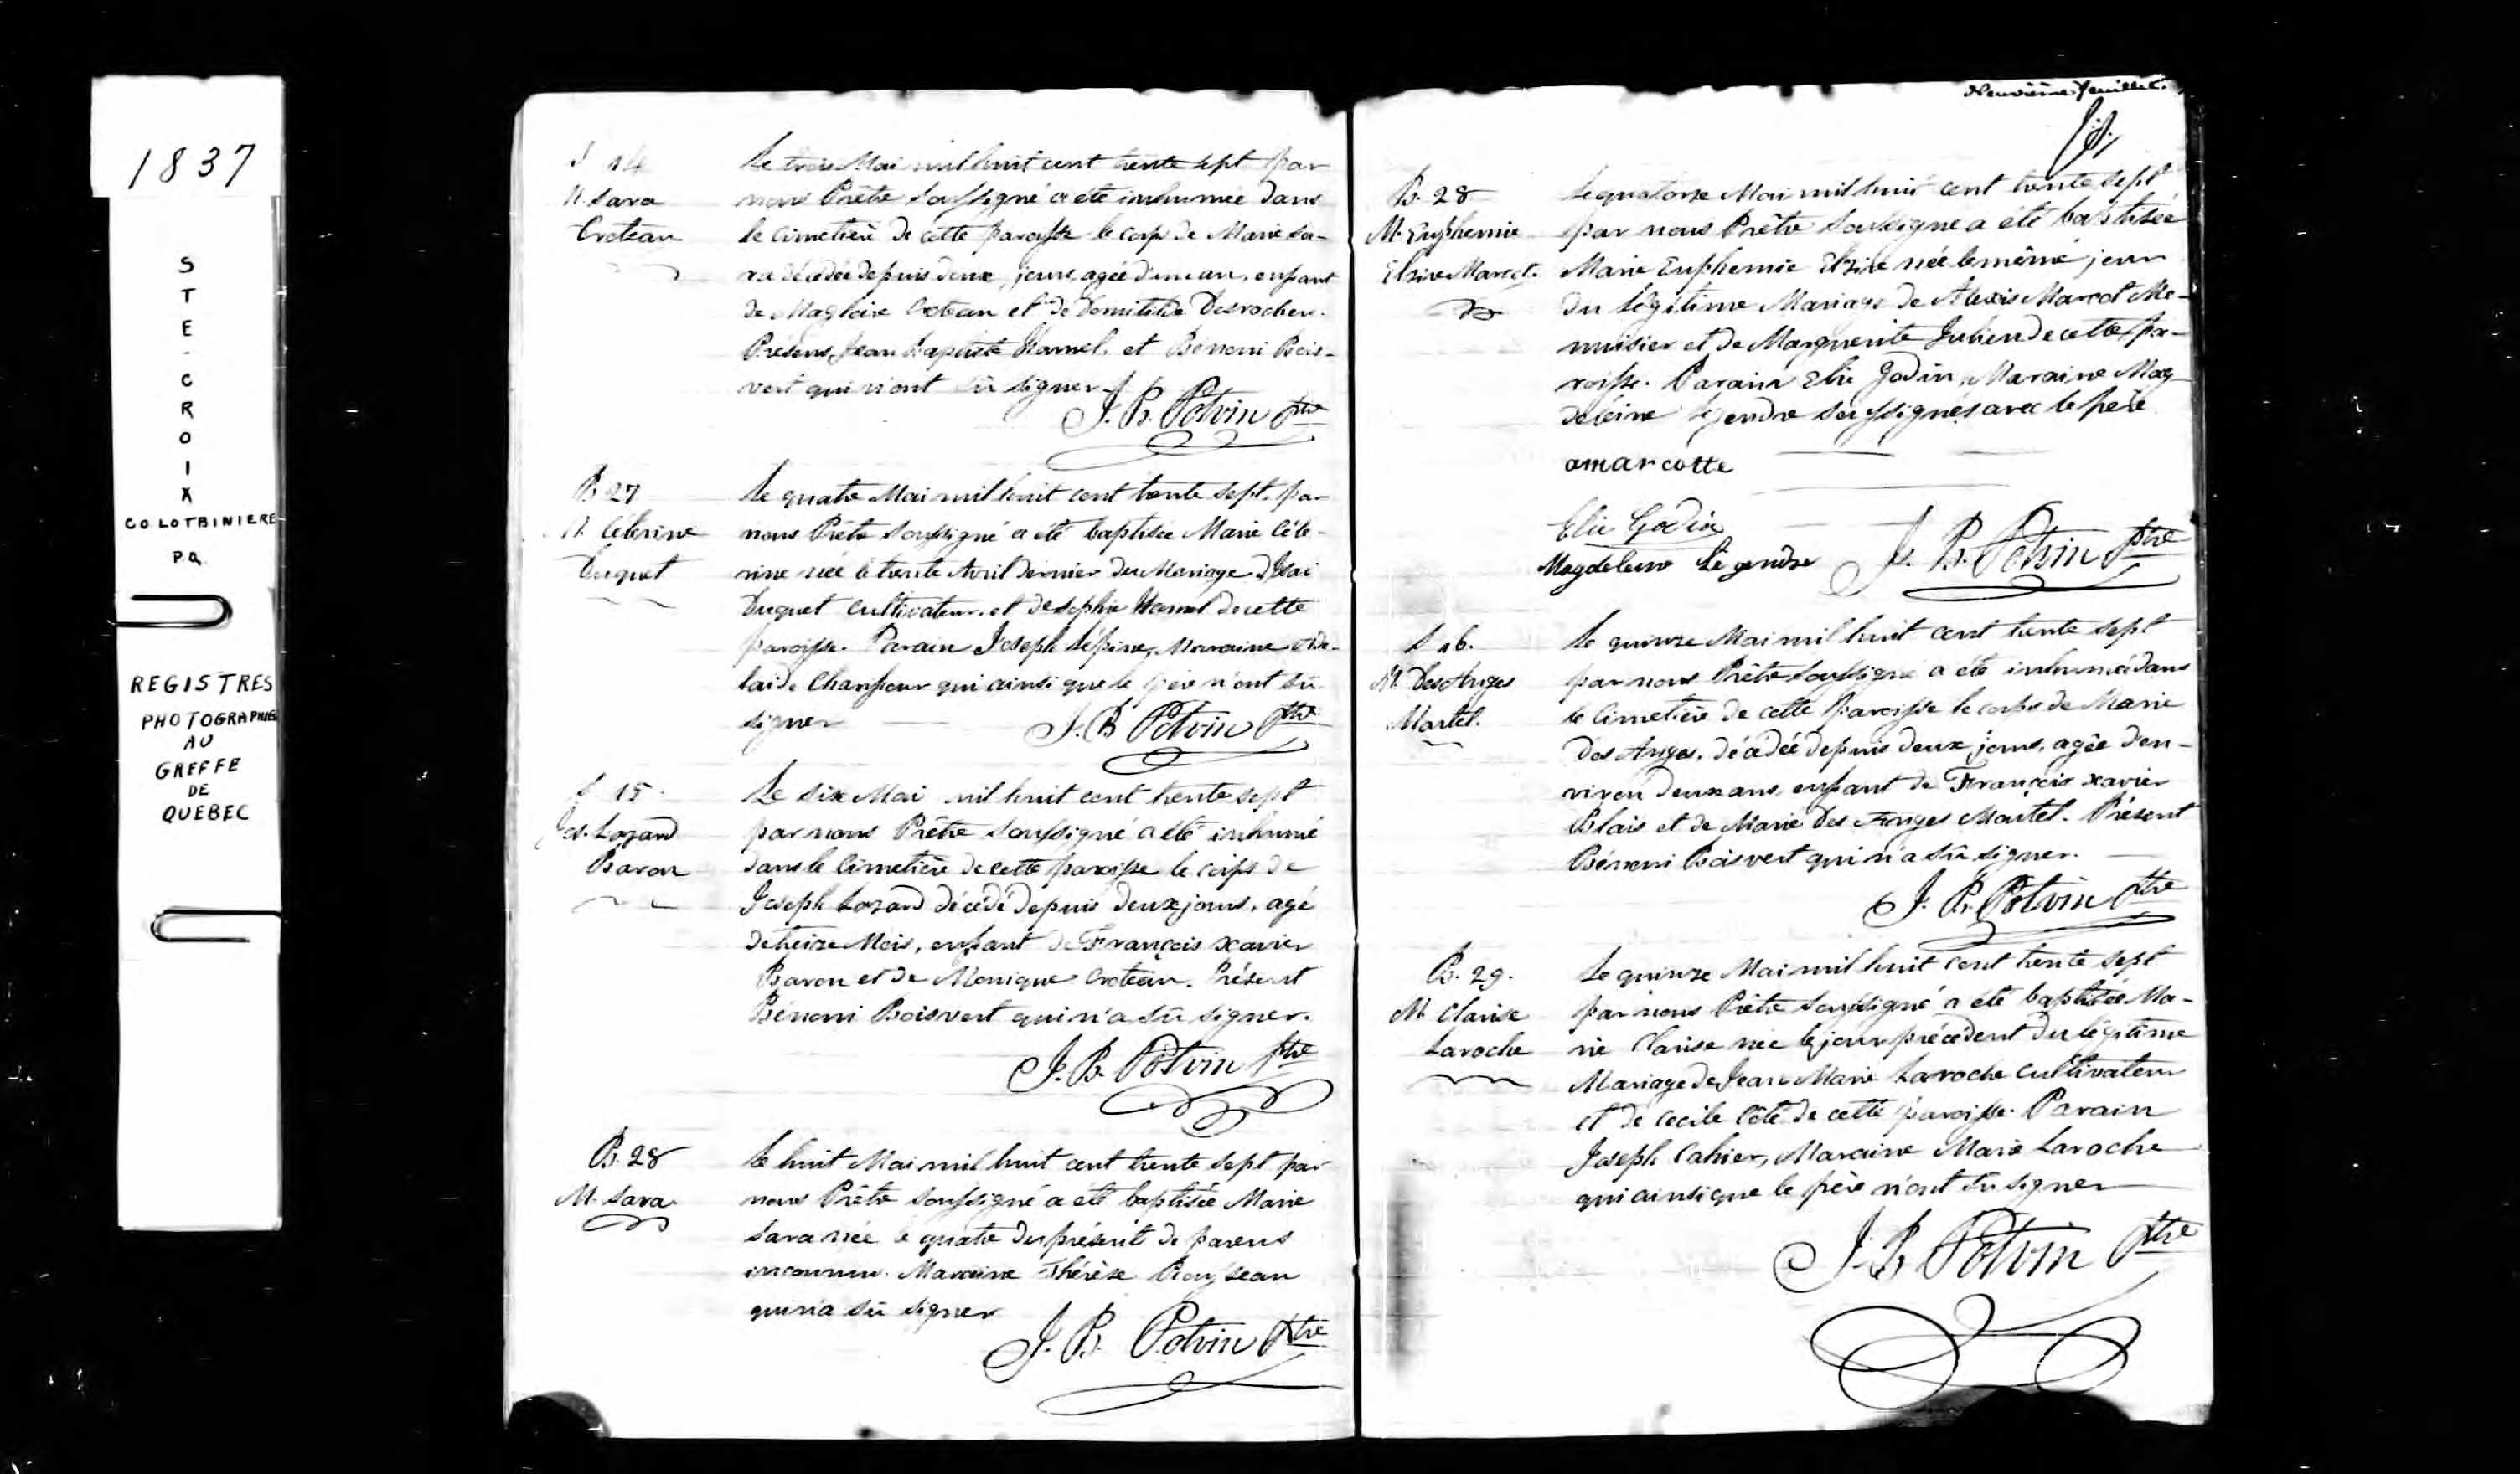 1837
STE-CROIX
CO. LOTBINIERE
P.Q.
REGISTRES
PHOTOGRAPHIES
AU
GREFFE
DE
QUEBEC
S 14
M. Sara
Croteau
Le trois Mai mil huit cent trente sept par
nous Prêtre Soussigné a été inhumée dans
le Cimetière de cette paroisse le corps de Marie Sa-
ra décédée depuis deux jours, agée d'un an, enfant
de Magloire Croteau et de Domitilde Desrochers.
Présens Jean Baptiste Hamel, et Bénoni Bois-
vert qui n'ont sû signer
J. B. Potvin Ptre
B. 27
M. Céterine
Duquet
Le quatre Mai mil huit cent trente sept, par
nous Prêtre Soussigné a été baptisée Marie Céte-
rine née le trente Avril dernier du Mariage d'Isai
Duquet Cultivateur, et de Sophie Hamel de cette
paroisse. Parain Joseph Lépine, Maraine Adé-
laide Chanfour qui ainsi que le père n'ont sû
signer
J. B Potvin Ptre
S 15
Jos. Lozard
Baron
Le Six Mai mil huit cent trente sept
par nous Prêtre Soussigné a été inhumé
dans le Cimetière de cette paroisse le corps de
Joseph Lozard décédé depuis deux jours, agé
de treize Mois, enfant de François Xavier
Baron et de Monique Croteau. Présent
Bénoni Boisvert qui n'a sû signer.
J. B. Potvin Ptre
B. 28
M. Sara
Le huit Mai mil huit cent trente sept par
nous Prêtre Soussigné a été baptisée Marie
Sara née le quatre du présent de parens
inconnus. Maraine Thérèse Rousseau
qui n'a sû signer
J. B. Potvin Ptre
Neuvième feuillet.
B. 28
M. Euphemie
Elzire Marcot.
Le quatorze Mai mil huit cent trente sept
par nous Prêtre Soussigné a été baptisée
Marie Euphemie Elzire née le même jour
du légitime Mariage de Alexis Marcot Me-
nuisier et de Marguerite Julien de cette pa-
roisse. Parain Elie Godin, Maraine Mag-
deleine Legendre soussignés avec le père
amarcotte
Elie Godin
Magdeleine Légendre
J. B. Potvin Ptre
S 16.
M. Des Anges
Martel.
Le quinze Mai mil huit cent trente sept
par nous Prêtre Soussigné a été inhumée dans
le Cimetière de cette paroisse le corps de Marie
Des Anges, décédée depuis deux jours, agée d'en-
viron deux ans, enfant de François Xavier
Blais et de Marie Des Anges Martel. Présent
Bénoni Boisvert qui n'a sû signer.
J. B. Potvin Ptre
B. 29.
M. Clarise
Laroche
Le quinze Mai mil huit cent trente sept
par nous Prêtre Soussigné a été baptisée Ma-
rie Clarise née le jour précédent du légitime
Mariage de Jean Marie Laroche Cultivateur
et de Cecile Côté de cette paroisse. Parain
Joseph Cahier, Maraine Marie Laroche
qui ainsi que le père n'ont sû signer
J. B Potvin Ptre